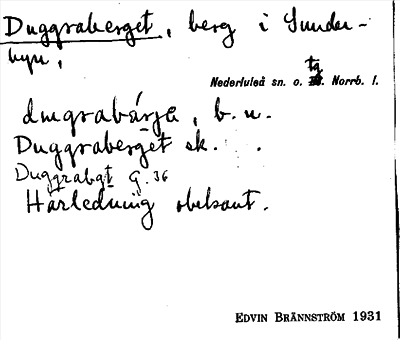 Duggraberget, berg i Sunder-
byn,
Nederluleå sn. o. tg. Norrb. l.
dugrabärjə, b. u.
Duggraberget sk.
Duggrabgt G. 36
Härledning obekant.
EDVIN BRÄNNSTRÖM 1931